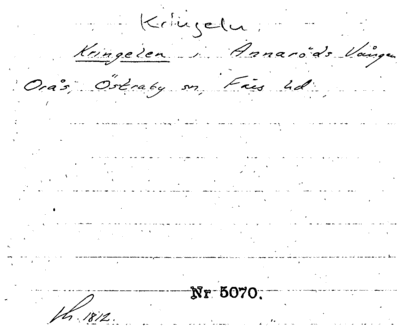 Kringeln.
Kringelen i Annaröds Vången
Orås, Östraby sn, Färs hd
Nr 5070.
1812.